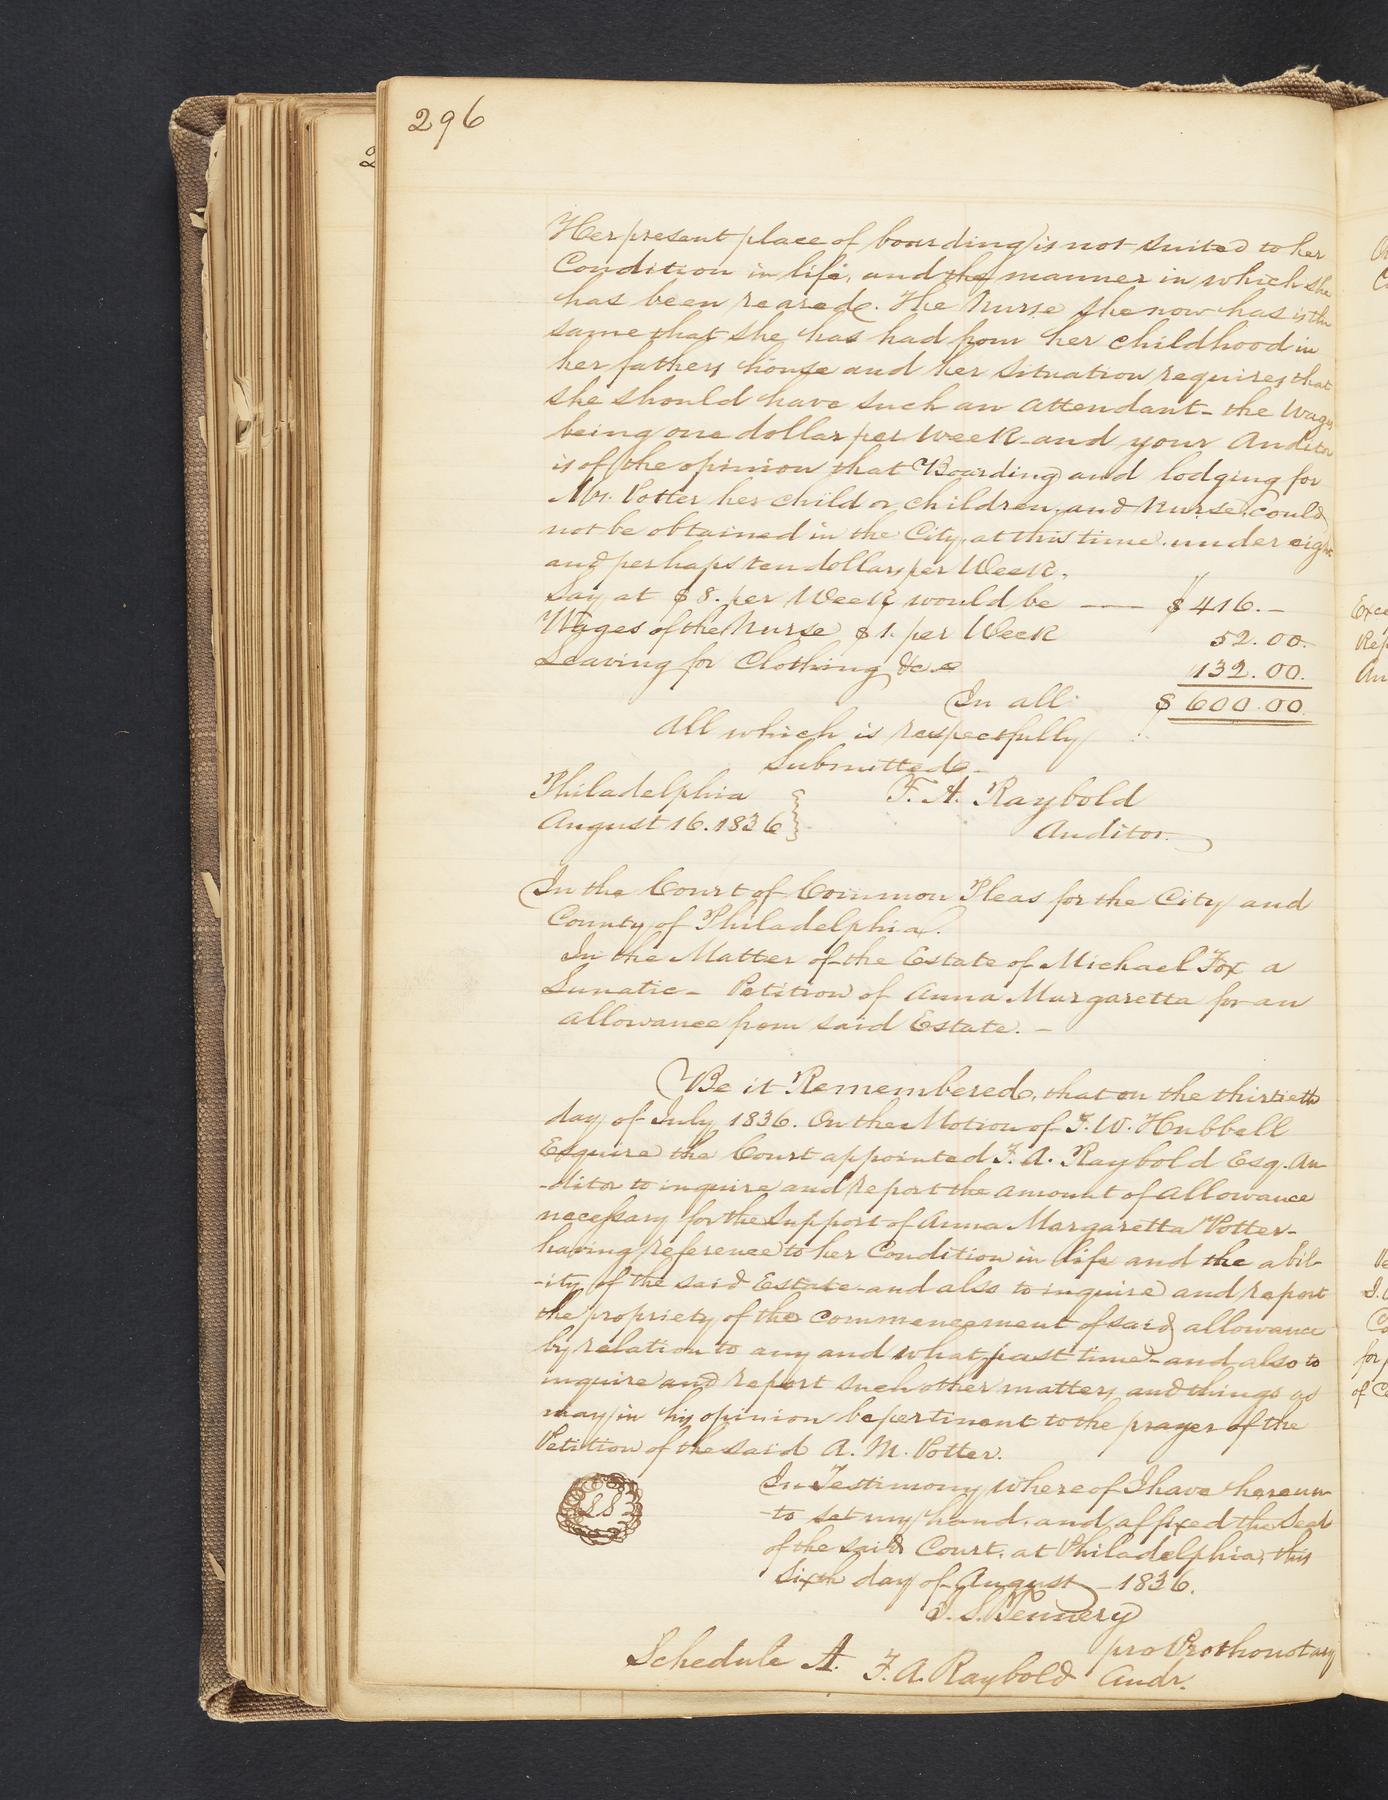 296
Her present place of boarding is not suited to her
Condition in life, and the manner in which she
has been reared. The Nurse she now has is the
same that she has had from her childhood in
her fathers house and her situation requires that
she should have such an attendant - the Wages
being one dollar per week - and your Auditor
is of the opinion that Boarding and lodging for
Mrs. Potter her child or children, and Nurse, could
not be obtained in the City, at this time, under eight
and perhaps ten dollars per Week.
Say at $8. per Week would be — $416.-
Wages of the Nurse $1. per Week 52.00.
Leaving for Clothing &c. 132.00.
In all $600.00
All which is respectfully
Submitted -
Philadelphia F. A. Raybold
August 16. 1836 Auditor.
In the Court of Common Pleas for the City and
County of Philadelphia.
In the Matter of the Estate of Michael Fox a
Lunatic - Petition of Anna Margaretta for an
allowance from said Estate. -
Be it Remembered, that on the thirtieth
day of July 1836. On the Motion of F. W. Hubbell
Esquire the Court appointed F. A. Raybold Esq. Au-
-ditor to inquire and report the amount of allowance
necessary for the Support of Anna Margaretta Potter -
having reference to her Condition in life and the abil-
-ity of the said Estate - and also to inquire and report
the propriety of the commencement of said allowance
by relation to any and what past time - and also to
inquire and report such other matters and things as
may in his opinion be pertinent to the prayer of the
Petition of the said A. M. Potter.
In Testimony whereof I have hereun-
-to set my hand, and affixed the Seal
of the said Court, at Philadelphia, this
Sixth day of August - 1836.
LS
pro Prothonotary
Schedule A. F. A. Raybold Audr.